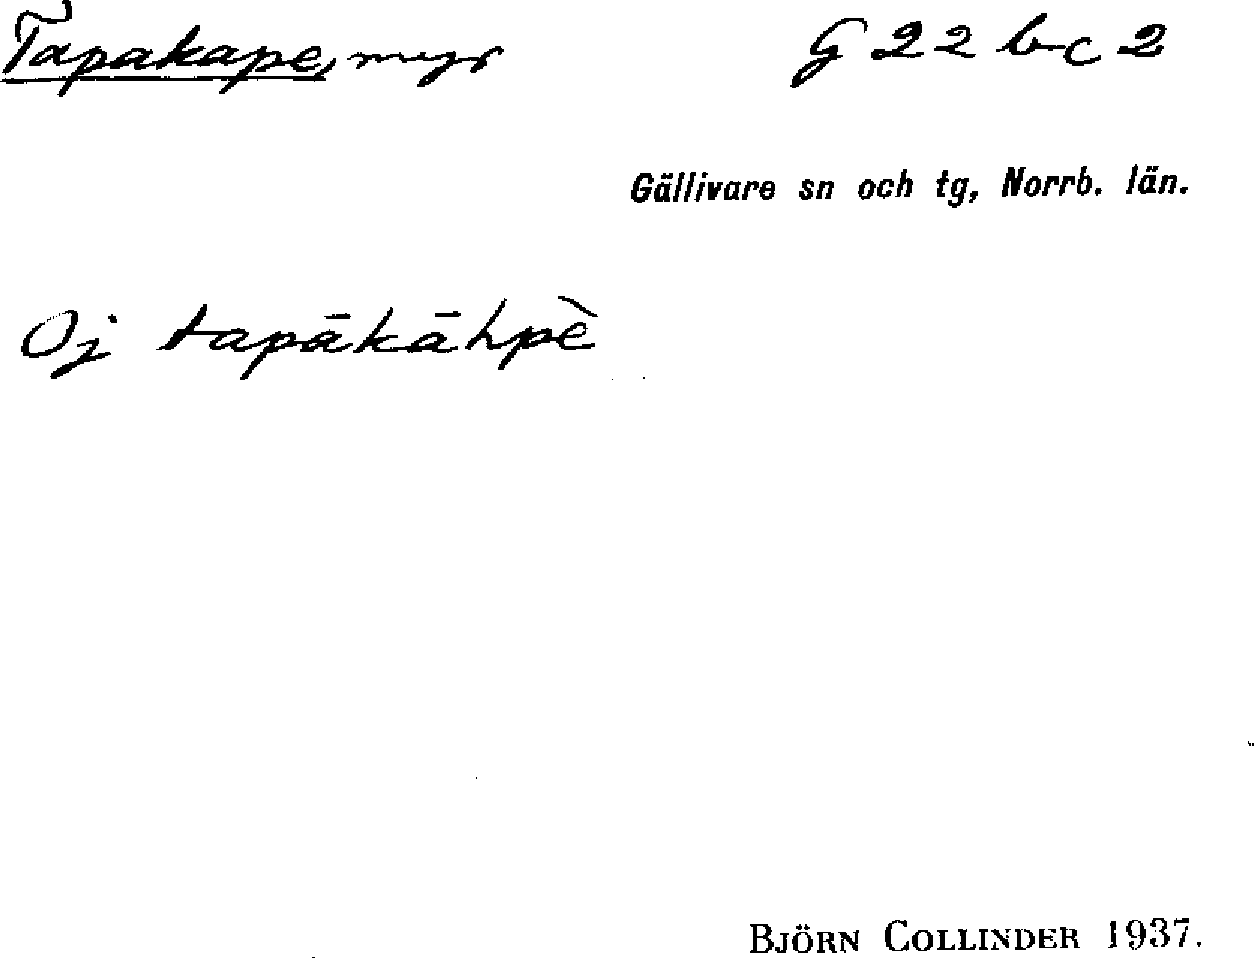 Tapakape, myr G 22 b-c 2
Gällivare sn och tg, Norrb. län.
Oj tapākāhpè
BJÖRN COLLINDER 1937.